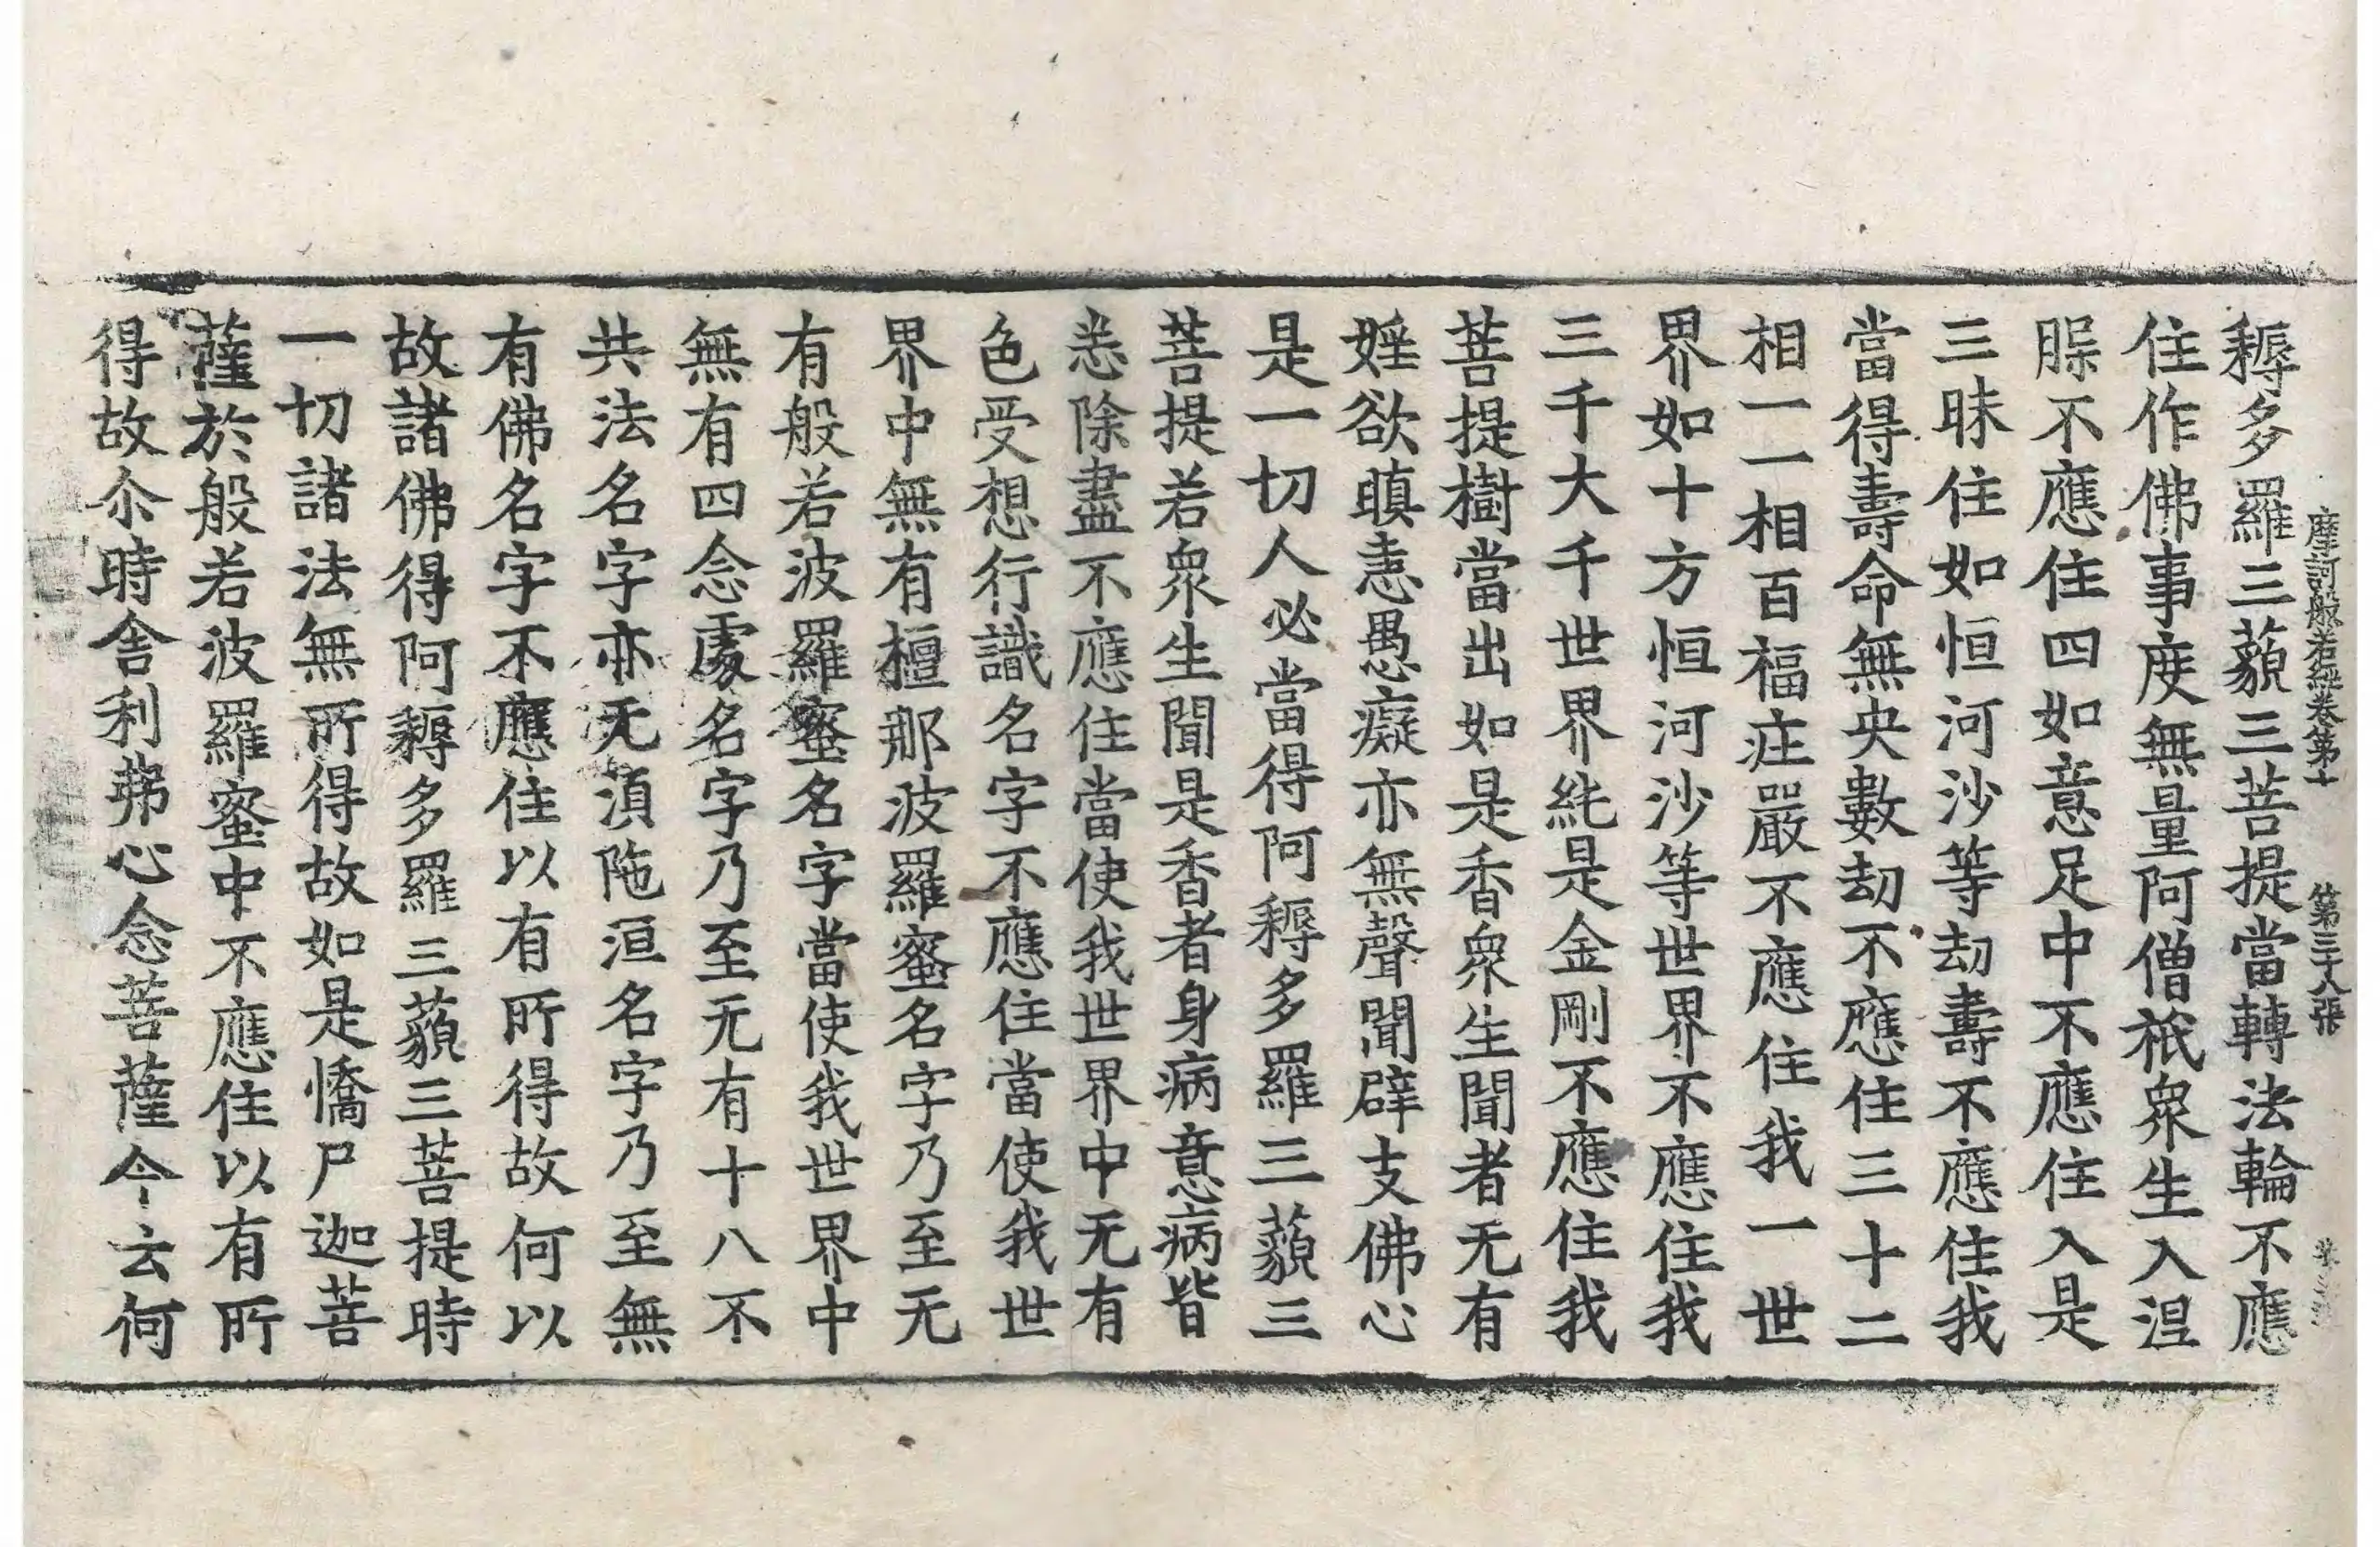 摩訶般若經卷第十 第三十八張
耨多羅三藐三菩提當轉法輪不應
住作佛事度無量阿僧祇衆生入涅
𦙆不應住四如意足中不應住入是
三昧住如恒河沙等劫壽不應住我
當得壽命無央數劫不應住三十二
相一一相百福庄嚴不應住我一世
界如十方恒河沙等世界不應住我
三千大千世界純是金剛不應住我
菩提樹當出如是香衆生聞者无有
婬欲瞋恚愚癡亦無聲聞辟支佛心
是一切人必當得阿耨多羅三藐三
菩提若衆生聞是香者身病意病皆
悉除盡不應住當使我世界中无有
色受想行識名字不應住當使我世
界中無有檀那波羅蜜名字乃至无
有般若波羅蜜名字當使我世界中
無有四念處名字乃至无有十八不
共法名字亦无湏陁洹名字乃至無
有佛名字不應住以有所得故何以
故諸佛得阿耨多羅三藐三菩提時
一切諸法無所得故如是憍尸迦菩
薩於般若波羅蜜中不應住以有所
得故尒時舍利弗心念菩薩今云何